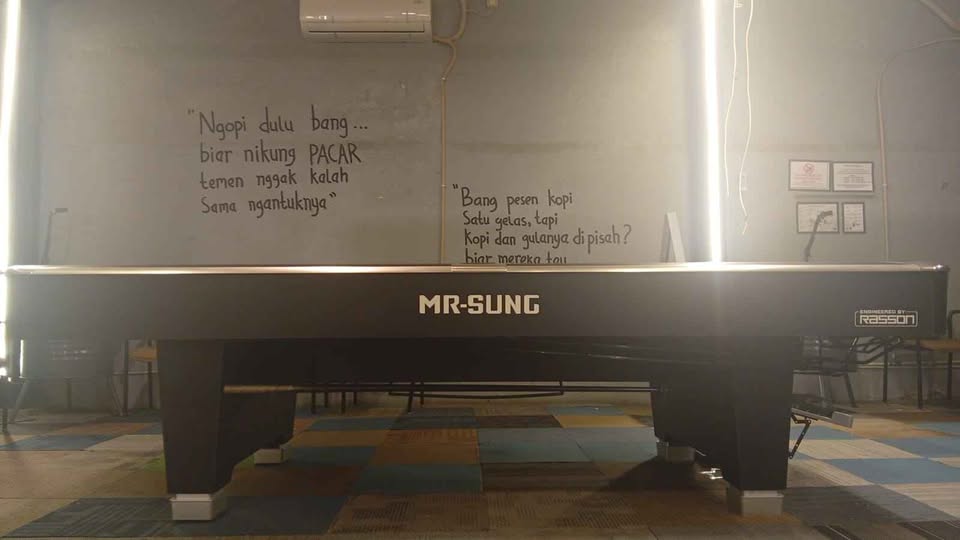 "Ngopi dulu bang...
biar nikung PACAR
temen nggak kalah
Sama ngantuknya"
"Bang pesen kopi
Satu gelas, tapi
Kopi dan gulanya dipisah?
biar mereka tau
MR-SUNG
ENGINEERED BY
RASSON